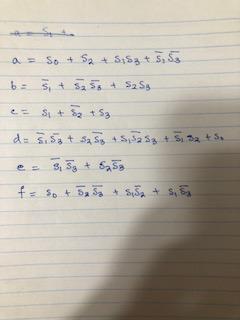 a = S₁ +
a = S₀ + S₂ + S₁S₃ + S̅₁S̅₃
b = S̅₁ + S̅₂S̅₃ + S₂S₃
c = S₁ + S̅₂ + S₃
d = S̅₁S̅₃ + S₂S̅₃ + S₁S̅₂S₃ + S̅₁S₂ + S₀
e = S̅₁S̅₃ + S₂S̅₃
f = S₀ + S̅₂S̅₃ + S₁S̅₂ + S₁S̅₃